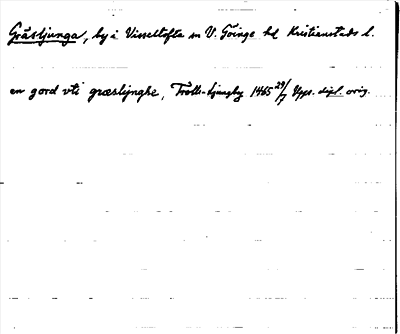 Gräsljunga, by i Visseltofta sn V. Göinge hd Kristianstads l.
en gord vti græslynghe, Trolle-Ljungby 1465 29/7 Upps. dipl. orig.